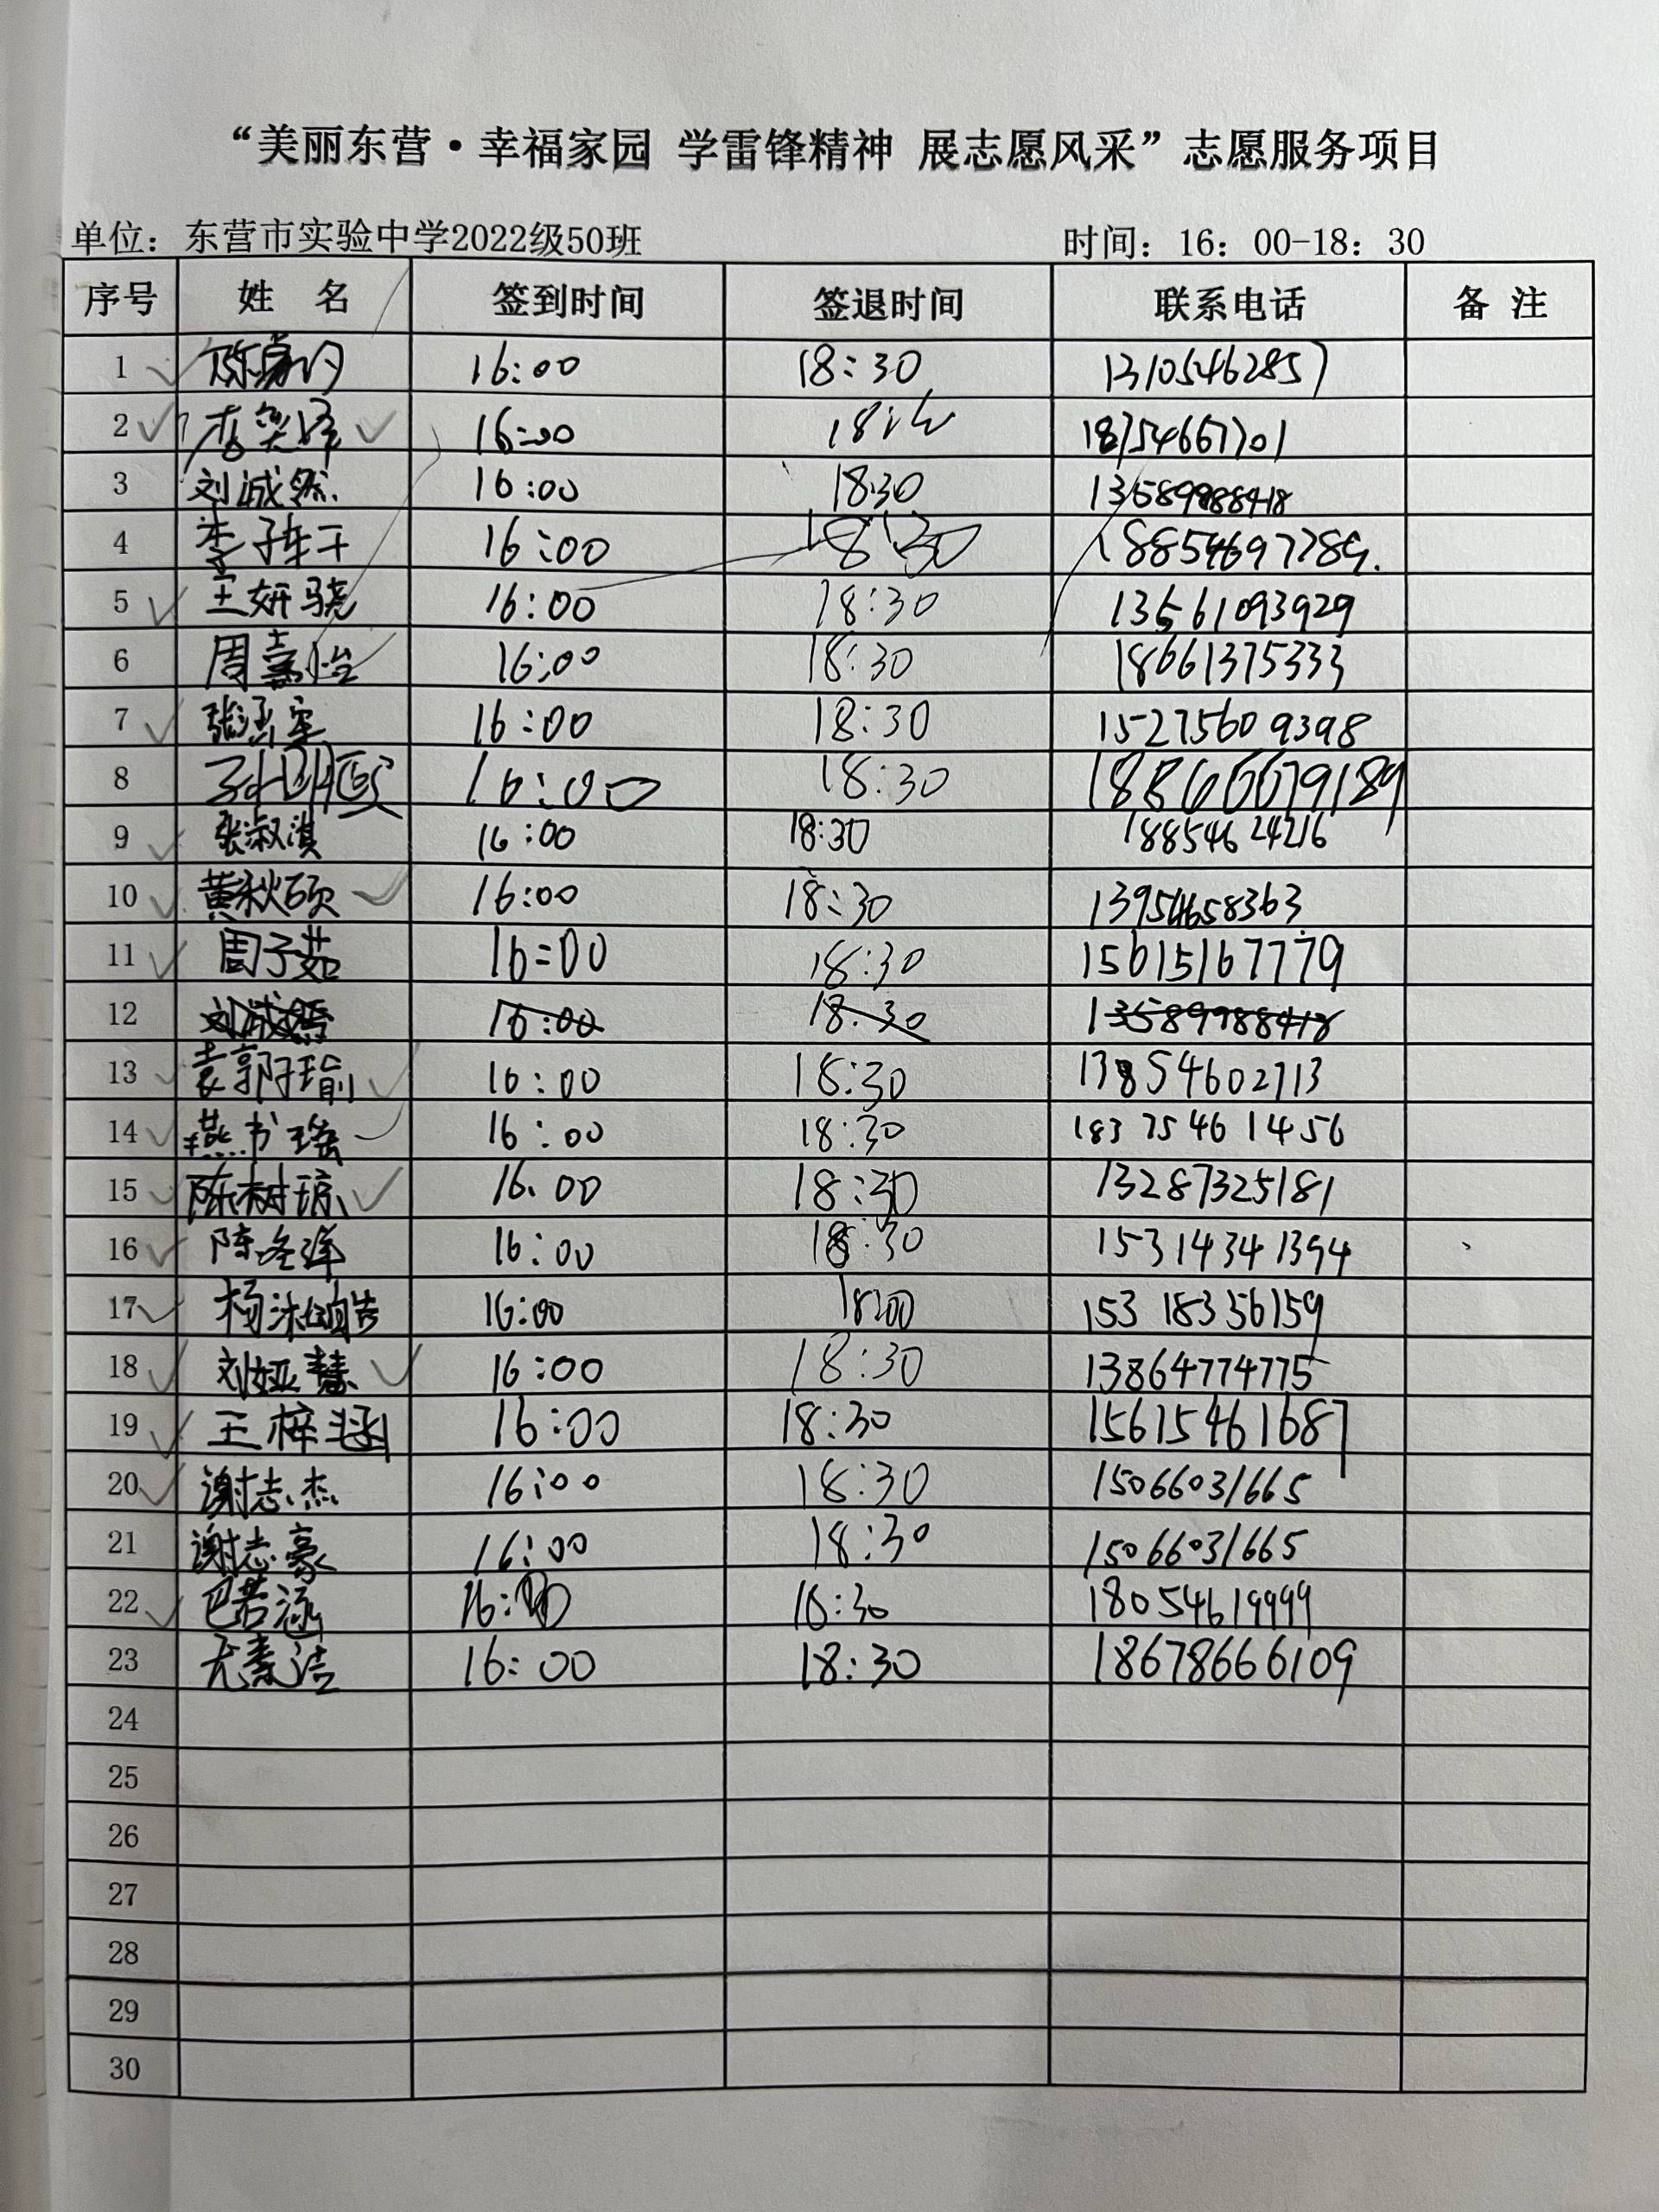 “美丽东营·幸福家园 学雷锋精神 展志愿风采”志愿服务项目
单位：东营市实验中学2022级50班 时间：16：00-18：30
序号 姓 名 签到时间 签退时间 联系电话 备 注
1 16:00 18:30 13105462857
2 李奕泽 16:00 18754667701
3 刘诚然 16:00 18:30 13589988418
4 李子 16:00 18:30 18854697289.
5 王妍骁 16:00 18:30 13561093929
6 周嘉怡 16:00 18:30 18661375333
7 16:00 18:30 15275609398
8 16:00 18:30
9 张淑淇 16:00 18:30 18854624216
10 黄秋硕 16:00 18:30 13954658363
11 周子茹 16:00 18:30 15615167779
12 16:00 18:30 13589988418
13 袁郭子瑜 16:00 18:30 13854602713
14 燕书瑶 16:00 18:30 183 7546 1456
15 陈树琼 16:00 18:30 13287325181
16 陈冬泽 16:00 18:30 15314341394
17 杨沐 16:00 18:00 153 18356159
18 刘娅慧 16:00 18:30 13864774775
19 王梓涵 16:00 18:30 15615461687
20 谢志杰 16:00 18:30 15066031665
21 谢志豪 16:00 18:30 15066031665
22 巴若涵 16:00 18:30 18054619999
23 16:00 18:30 18678666109
24
25
26
27
28
29
30